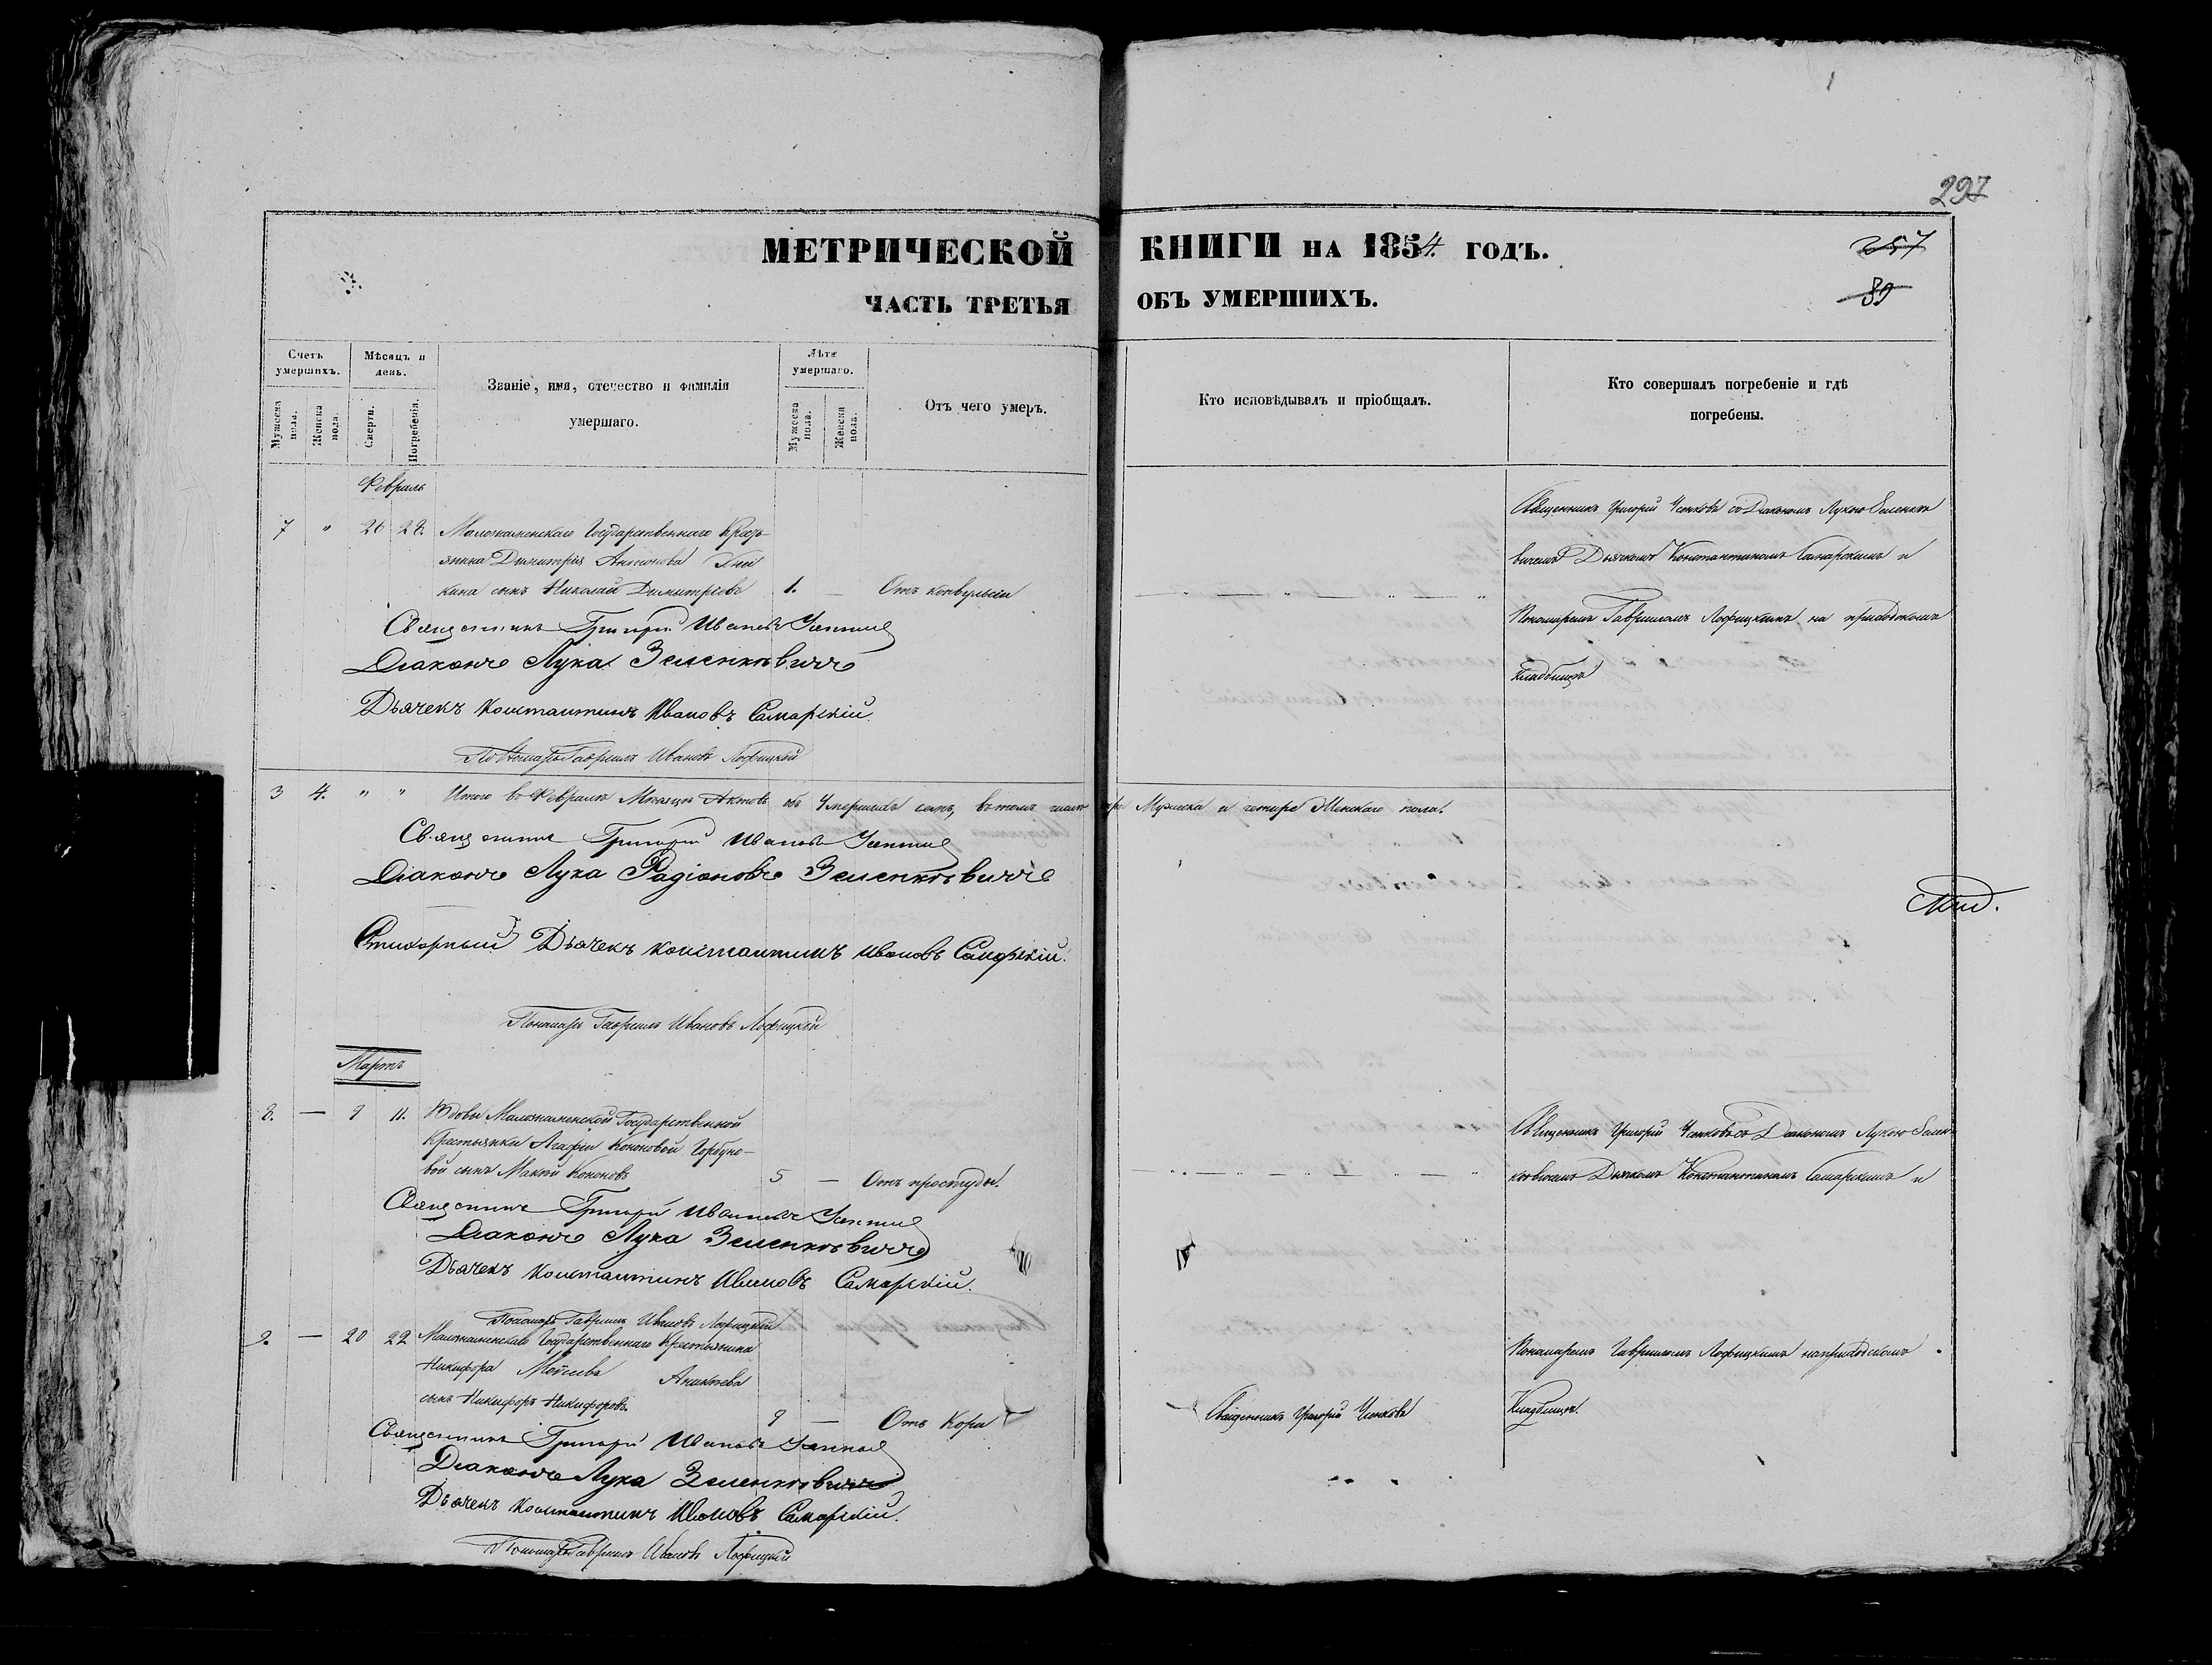 297
МЕТРИЧЕСКОЙ КНИГИ НА 1854 ГОДЪ.
257
ЧАСТЬ ТРЕТЬЯ ОБЪ УМЕРШИХЪ.
89
Счетъ умершихъ.
Мужеска пола.
Женска пола.
Мѣсяцъ и день.
Смерти.
Погребенія.
Званіе, имя, отечество и фамилія
умершаго.
Лѣта умершаго.
Мужеска пола.
Женска пола.
Отъ чего умеръ.
Кто исповѣдывалъ и пріобщалъ.
Кто совершалъ погребеніе и гдѣ
погребены.
Февраль
7 " 26 28. Малознаменскаго Государственнаго Крестьянина
Димитрія Антонова
кина сынъ Николай Димитріевъ 1. — Отъ конвульсіи
Священникъ Григорій со Діакономъ Лукою Зеленкевичемъ
Дьячкомъ Константиномъ Самарскимъ и
Пономаремъ Гавріиломъ Лофицкимъ на приходскомъ
кладбищѣ
Священникъ Григорій Ивановъ
Діаконъ Лука Зеленкѣвичъ
Дьячекъ Константинъ Ивановъ Самарскій.
Пономарь Гавріилъ Ивановъ Лофицкій
3 4. " " Итого въ Февралѣ Мѣсяцѣ Актовъ объ Умершихъ семь, въ томъ числѣ три Мужеска и четыре Женскаго пола.
Священникъ Григорій Ивановъ
Діаконъ Лука Радіоновъ Зеленкѣвичъ
Стихарный Дьячекъ Константинъ Ивановъ Самарскій.
Пономарь Гавріилъ Ивановъ Лофицкій
Мартъ
8. — 9 11. Вдовы Малознаменской Государственной
Крестьянки Агафіи Кононовой Горбуно-
вой сынъ Кононовъ 5 — Отъ простуды.
Священникъ Григорій со Діакономъ Лукою Зелен-
кѣвичемъ Дьячкомъ Константиномъ Самарскимъ и
Священникъ Григорій Ивановъ
Діаконъ Лука Зеленкѣвичъ
Дьячекъ Константинъ Ивановъ Самарскій.
Пономарь Гавріилъ Ивановъ Лофицкій
9. — 20 22 Малознаменскаго Государственнаго Крестьянина
Никифора Моисеева Аникѣева
сынъ Никифоръ Никифоровъ. 9 — Отъ Кори
Священникъ Григорій
Пономаремъ Гавріиломъ Лофицкимъ на приходскомъ
Кладбищѣ.
Священникъ Григорій Ивановъ
Діаконъ Лука Зеленкѣвичъ
Дьячекъ Константинъ Ивановъ Самарскій.
Пономарь Гавріилъ Ивановъ Лофицкій